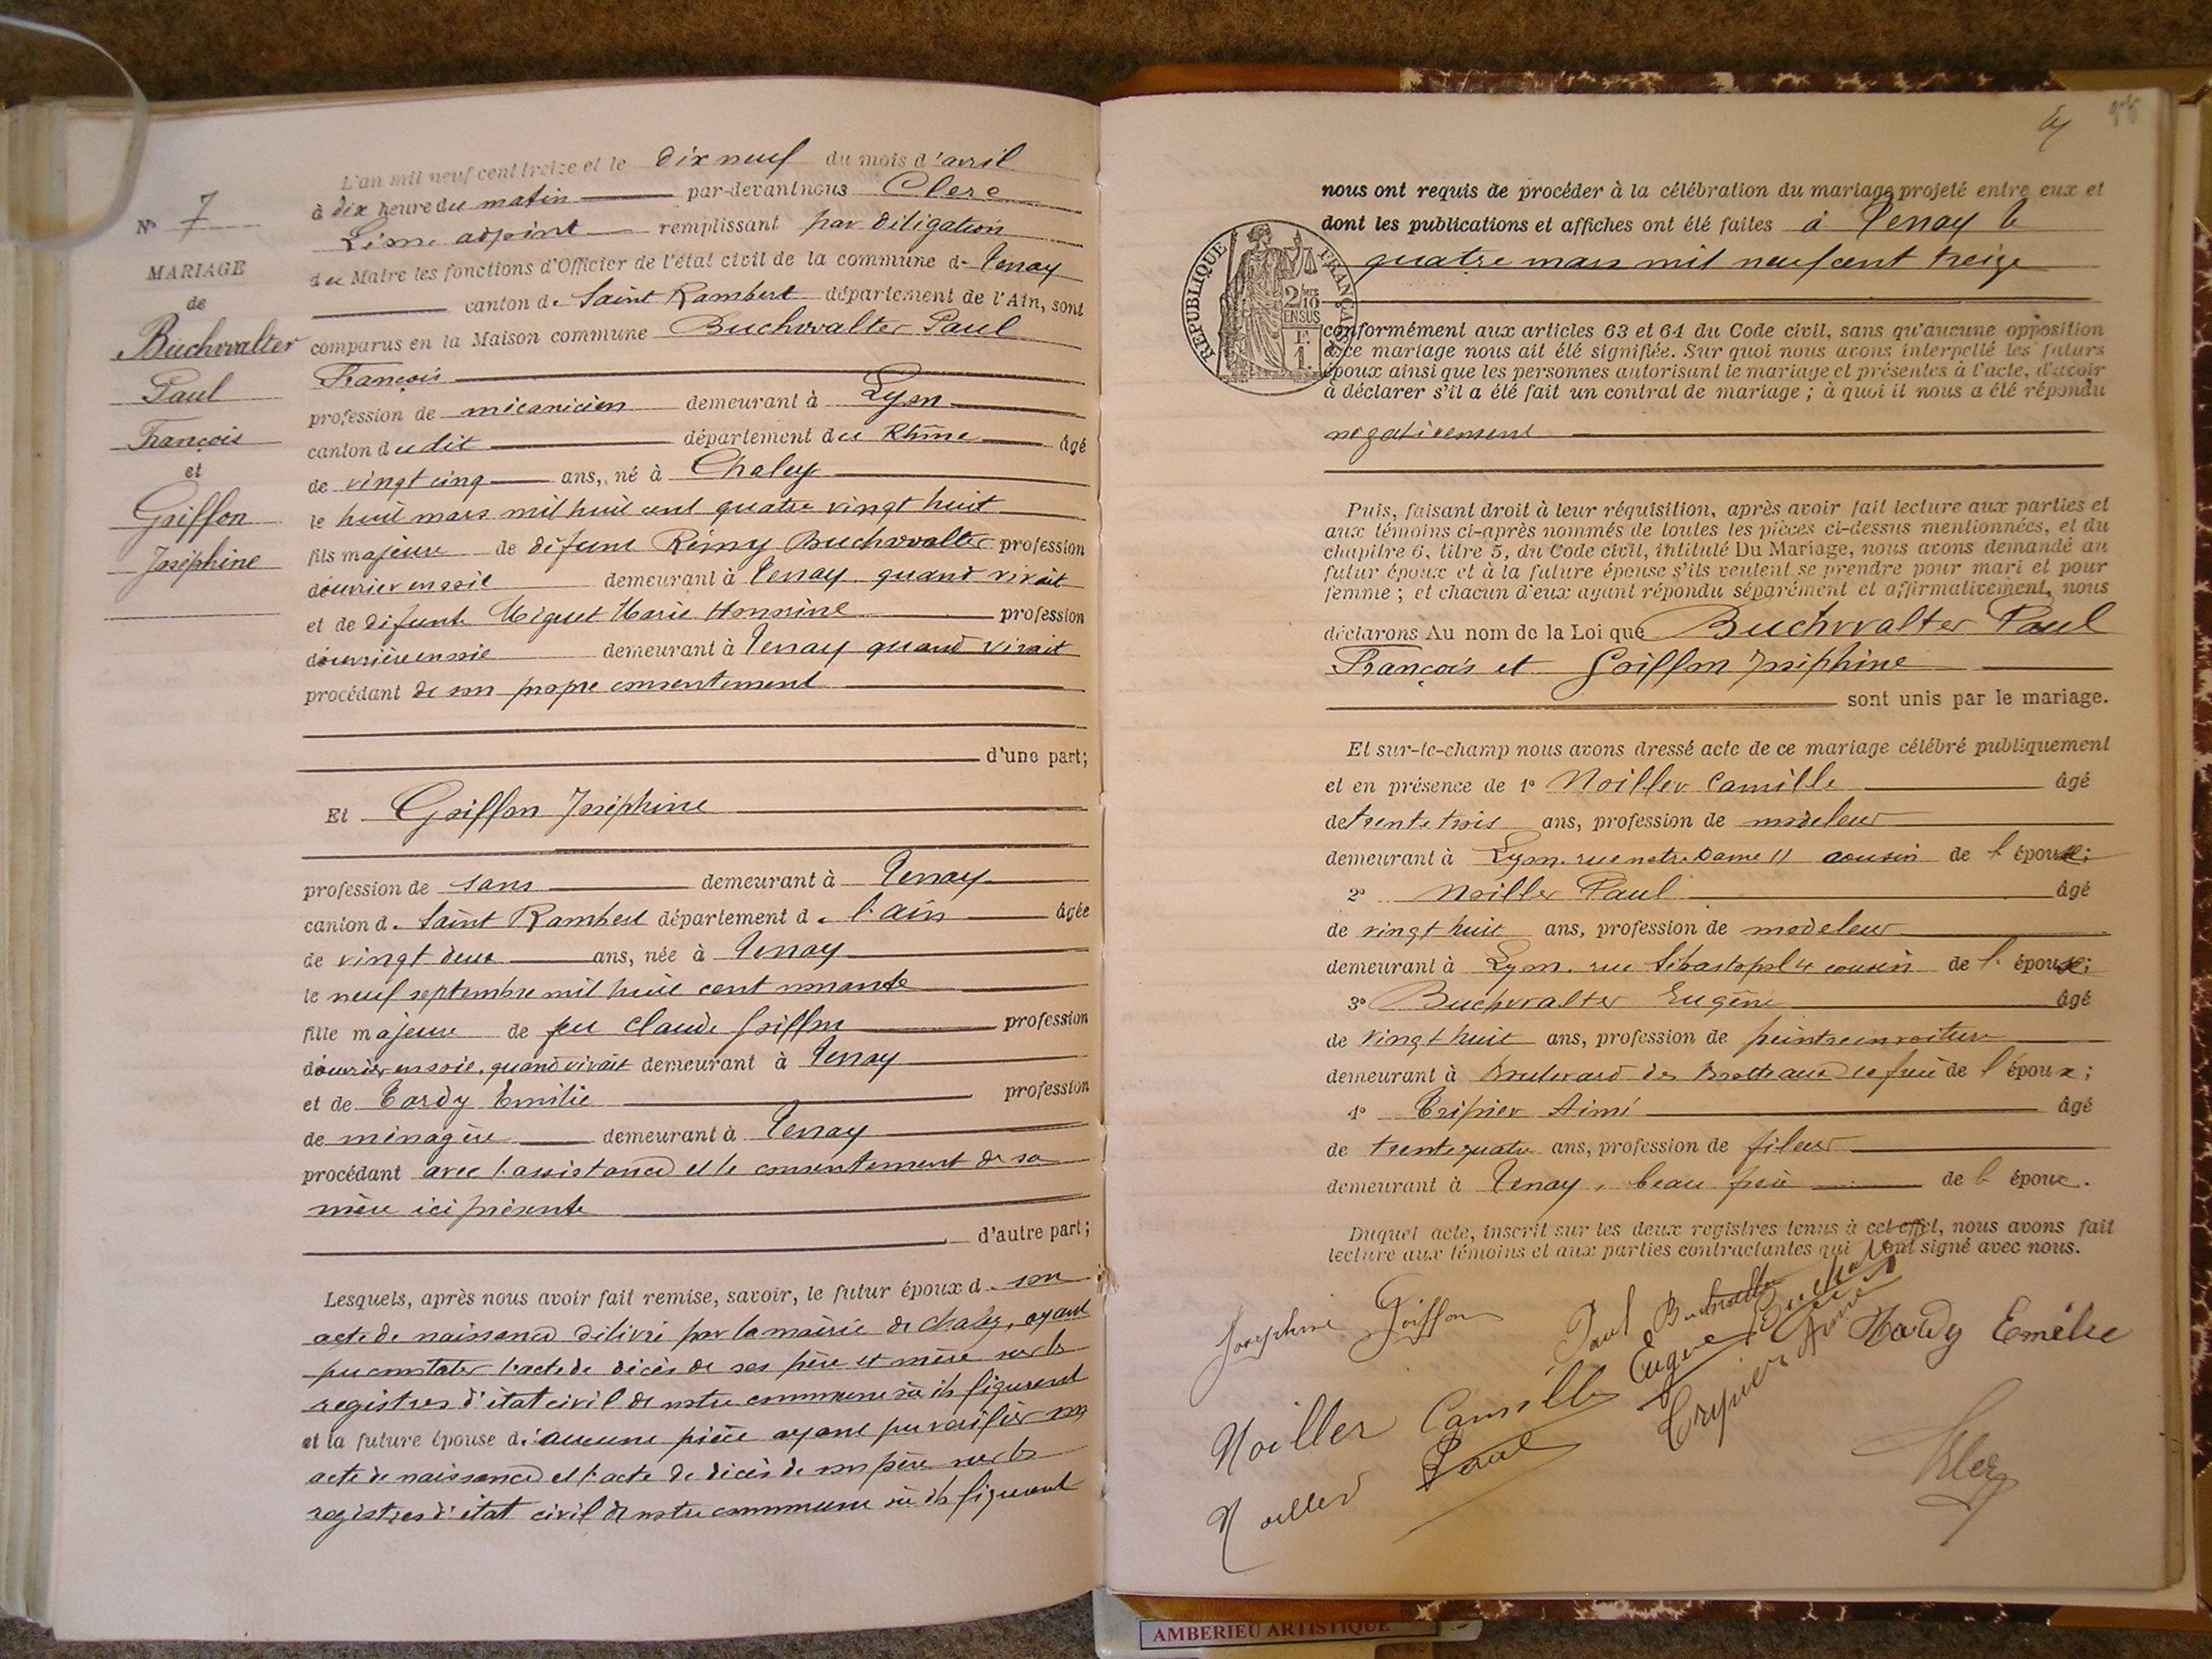 L'an mil neuf cent treize et le dix neuf du mois d'avril
à dix heure du matin par-devant nous Clerc
adjoint remplissant par délégation
du Maire les fonctions d'Officier de l'état civil de la commune de Tenay
canton de Saint Rambert département de l'Ain, sont
comparus en la Maison commune Buchwalter Paul
François
profession de mécanicien demeurant à Lyon
canton dudit département du Rhône âgé
de vingt cinq ans, né à Chaley
le huit mars mil huit cent quatre vingt huit
fils majeur de défunt Rémy Buchwalter profession
d'ouvrier en soie demeurant à Tenay quand vivait
et de défunte Miguet Marie Honorine profession
d'ouvrière en soie demeurant à Tenay quand vivait
procédant de son propre consentement
d'une part;
Et Griffon Joséphine
profession de sans demeurant à Tenay
canton de Saint Rambert département de l'Ain âgée
de vingt deux ans, née à Tenay
le neuf septembre mil huit cent nonante
fille majeure de feu Claude Griffon profession
d'ouvrier en soie, quand vivait demeurant à Tenay
et de Tardy Emilie profession
de ménagère demeurant à Tenay
procédant avec l'assistance et le consentement de sa
mère ici présente
d'autre part;
Lesquels, après nous avoir fait remise, savoir, le futur époux de son
acte de naissance délivré par la mairie de Chaley, ayant
pu constater l'acte de décès de ses père et mère sur les
registres d'état civil de notre commune où ils figurent
et la future épouse d'aucune pièce ayant pu vérifier son
acte de naissance et l'acte de décès de son père sur les
registres d'état civil de notre commune où ils figurent
N° 7
MARIAGE
de
Buchwalter
Paul
François
et
Griffon
Joséphine
nous ont requis de procéder à la célébration du mariage projeté entre eux et
dont les publications et affiches ont été faites à Tenay le
quatre mars mil neuf cent treize
RÉPUBLIQUE FRANÇAISE
2/10 EN SUS
F. 1
conformément aux articles 63 et 64 du Code civil, sans qu'aucune opposition
à ce mariage nous ait été signifiée. Sur quoi nous avons interpellé les futurs
époux ainsi que les personnes autorisant le mariage et présentes à l'acte, d'avoir
à déclarer s'il a été fait un contrat de mariage ; à quoi il nous a été répondu
négativement
Puis, faisant droit à leur réquisition, après avoir fait lecture aux parties et
aux témoins ci-après nommés de toutes les pièces ci-dessus mentionnées, et du
chapitre 6, titre 5, du Code civil, intitulé Du Mariage, nous avons demandé au
futur époux et à la future épouse s'ils veulent se prendre pour mari et pour
femme ; et chacun d'eux ayant répondu séparément et affirmativement, nous
déclarons Au nom de la Loi que Buchwalter Paul
François et Griffon Joséphine
sont unis par le mariage.
Et sur-le-champ nous avons dressé acte de ce mariage célébré publiquement
et en présence de 1° Noiller Camille âgé
de trente trois ans, profession de modeleur
demeurant à Lyon. rue notre Dame 11 cousin de l'époux;
2° Noiller Paul âgé
de vingt huit ans, profession de modeleur
demeurant à Lyon. rue Sébastopol 4 cousin de l'époux;
3° Buchwalter Eugène âgé
de vingt huit ans, profession de peintre en voiture
demeurant à Boulevard des Brotteaux frère de l'époux;
4° Tripier Aimé âgé
de trente quatre ans, profession de fileur
demeurant à Tenay, beau frère de l'épouse.
Duquel acte, inscrit sur les deux registres tenus à cet effet, nous avons fait
lecture aux témoins et aux parties contractantes qui l'ont signé avec nous.
Joséphine Griffon Paul Buchwalter
Eugène
Tripier Aimé
Tardy Emélie
Noiller Camille
Noiller Paul
Clerc
AMBERIEU ARTISTIQUE